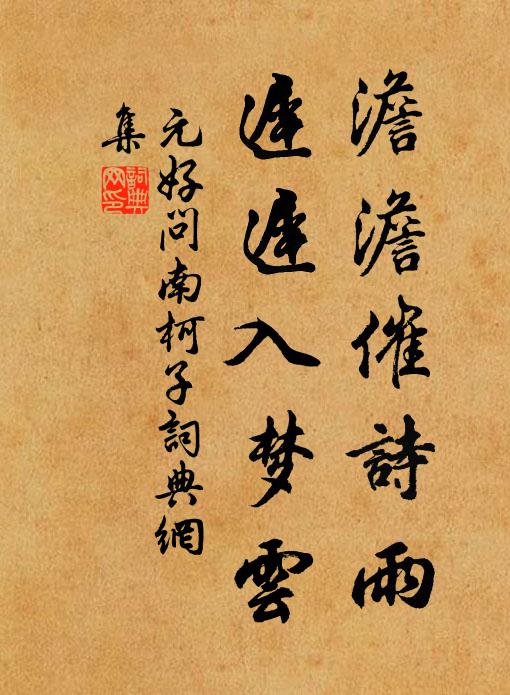 澹澹催詩雨
遲遲入梦雲
元好问南柯子詞典網
集
詞典
网印